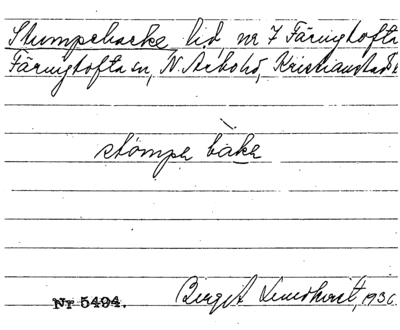 Stumpebacke lid, nr 7 Färingtofta
Färingtofta sn, N. Åsbohd, Kristianstads l
stómpe bàke
Nr 5494. Birgit Lundkvist, 1936